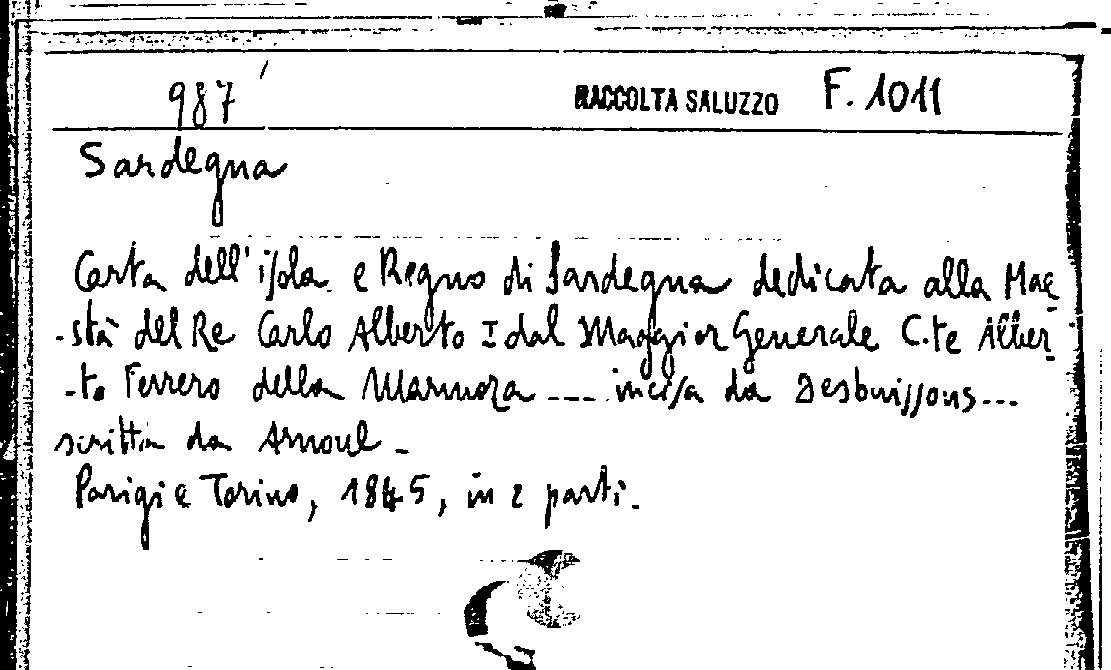 987 RACCOLTA SALUZZO F. 1011
Sardegna
Carta dell'isola e Regno di Sardegna dedicata alla Mae
-stà del Re Carlo Alberto I dal Maggior Generale C.te Alber
-to Ferrero della Marmora --- incisa da Desbuissons...
scritta da Arnoul -
Parigi e Torino, 1845, in 2 parti.